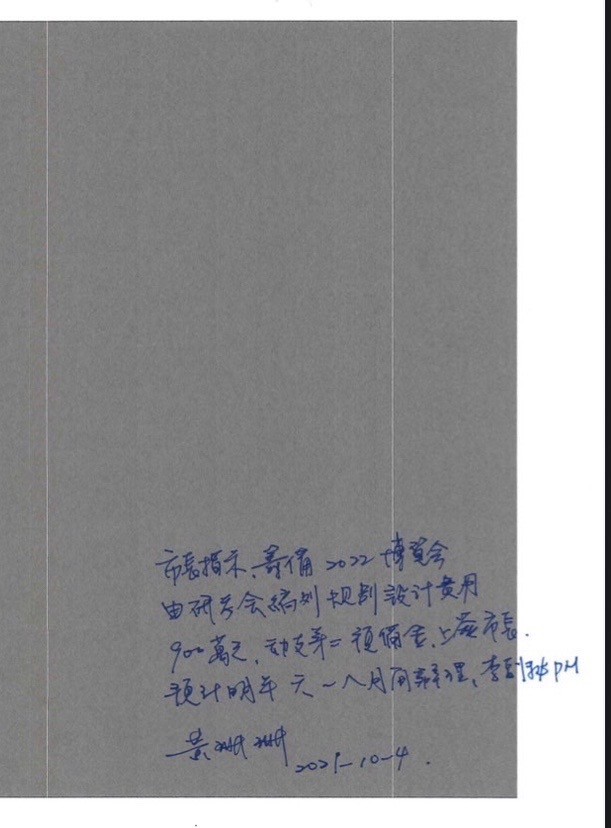 市長指示、籌備2022博覽会
由研考会編列規劃設計費用
900萬元、動支第二預備金、上簽市長.
預計明年 六-八月間辦理、李副秘PM
黃珊珊 2021-10-4.